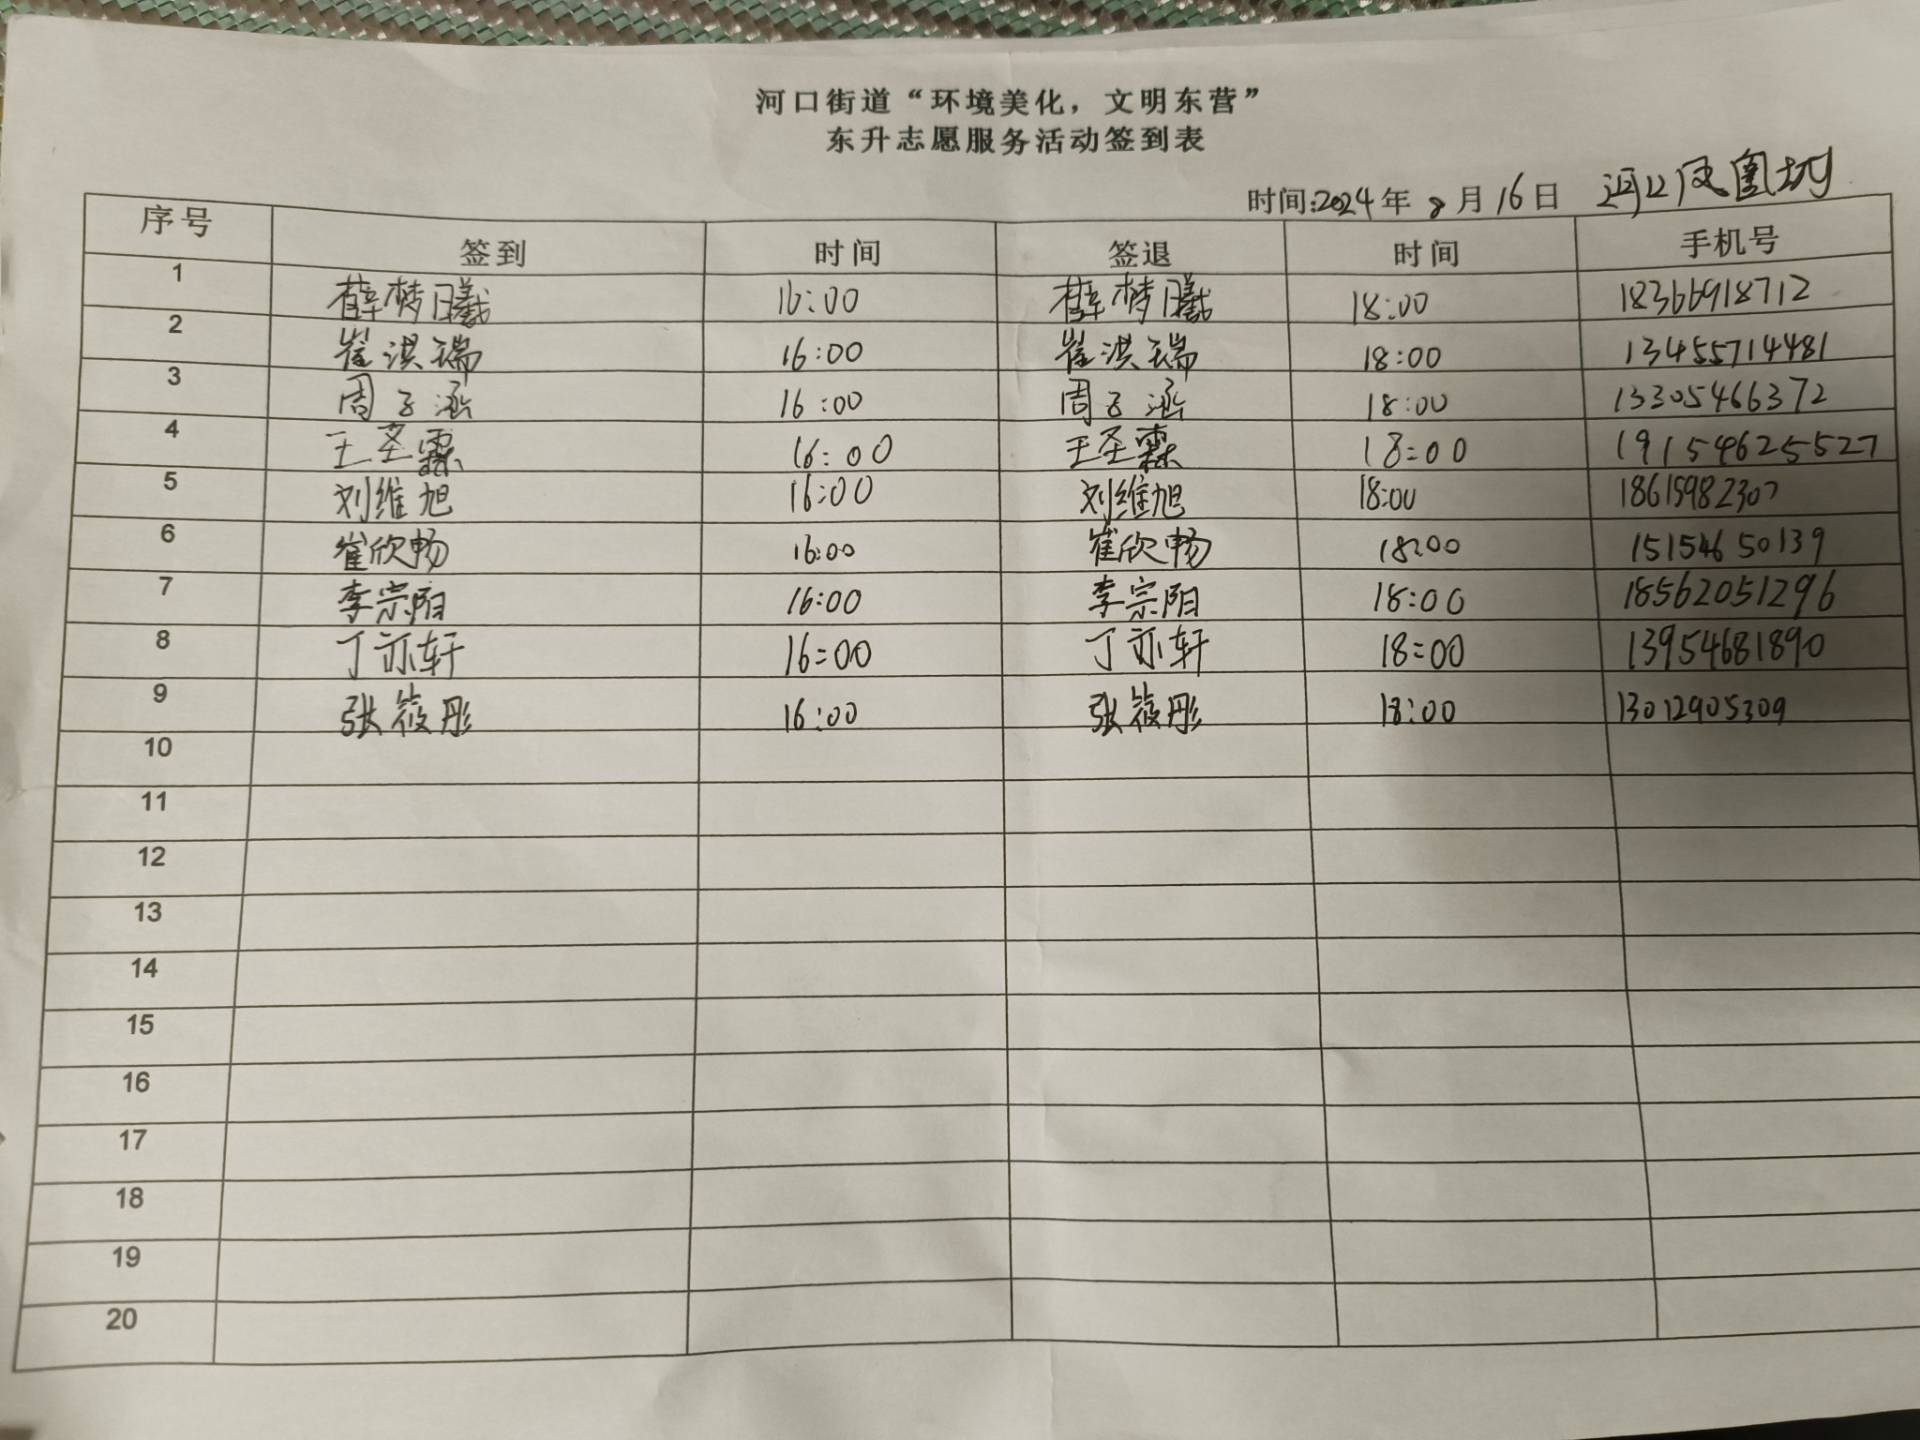 河口街道“环境美化，文明东营”
东升志愿服务活动签到表
时间:2024年 8月16日 河口凤凰城
序号 签到 时间 签退 时间 手机号
1 薛梦曦 16:00 薛梦曦 18:00 18366918712
2 崔淇瑞 16:00 崔淇瑞 18:00 13455714481
3 周子涵 16:00 周子涵 18:00 13305466372
4 王圣霖 16:00 王圣霖 18:00 191154625527
5 刘维旭 16:00 刘维旭 18:00 18615982307
6 崔欣畅 16:00 崔欣畅 18:00 15154650139
7 李宗阳 16:00 李宗阳 18:00 18562051296
8 丁亦轩 16:00 丁亦轩 18:00 13954681890
9 张筱彤 16:00 张筱彤 18:00 13012905309
10
11
12
13
14
15
16
17
18
19
20